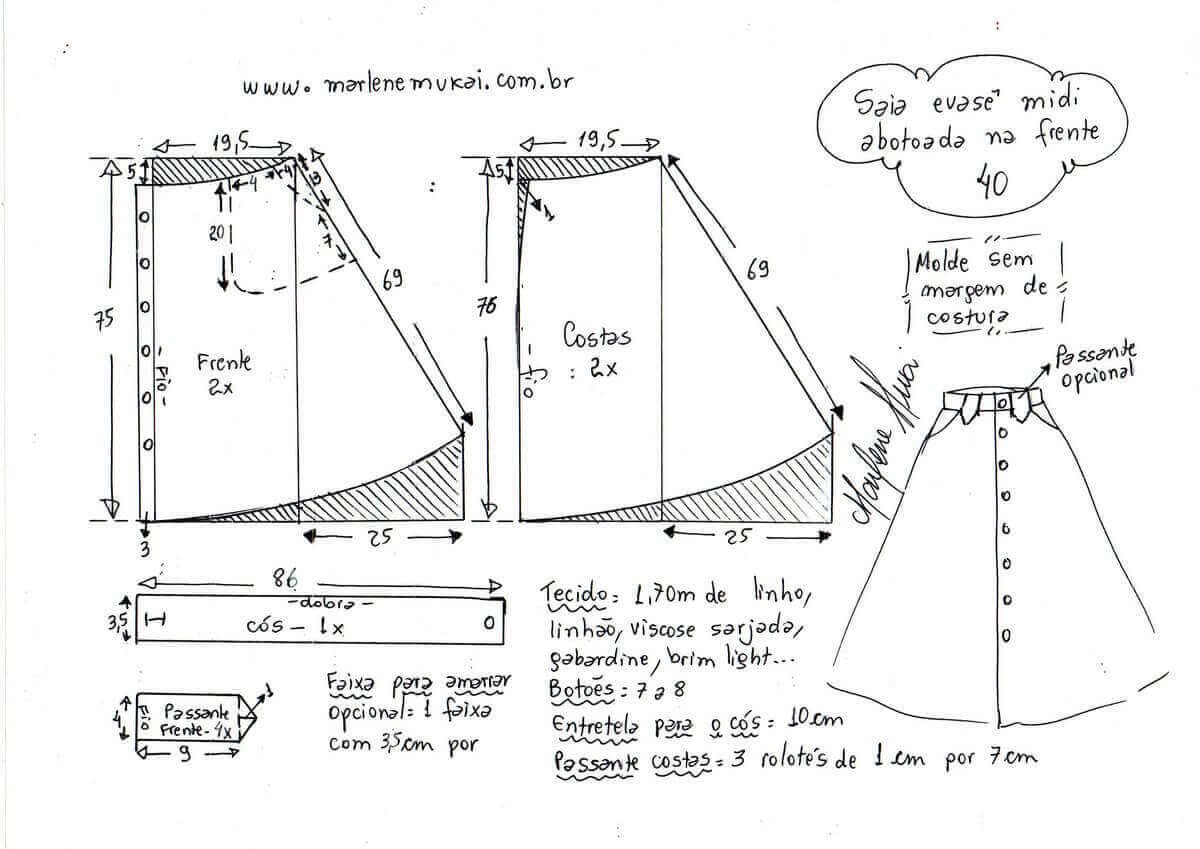 www.marlenemukai.com.br
Saia evasê midi
abotoada na frente
40
Molde sem
margem de
costura
Passante
opcional
19,5
5
4
4
13
7
20
69
75
Frente
2x
Fio
3
25
19,5
5
1
69
76
Costas
: 2x
Fio
25
Marlene Mukai
86
3,5
-dobra-
cós - 1x
Passante
Frente - 4x
Fio
4
9
1
Faixa para amarrar
Opcional = 1 faixa
com 3,5cm por
Tecido = 1,70m de linho,
linhão, viscose sarjada,
gabardine, brim light...
Botões = 7 a 8
Entretela para o cós = 10cm
Passante costas = 3 rolotés de 1cm por 7cm